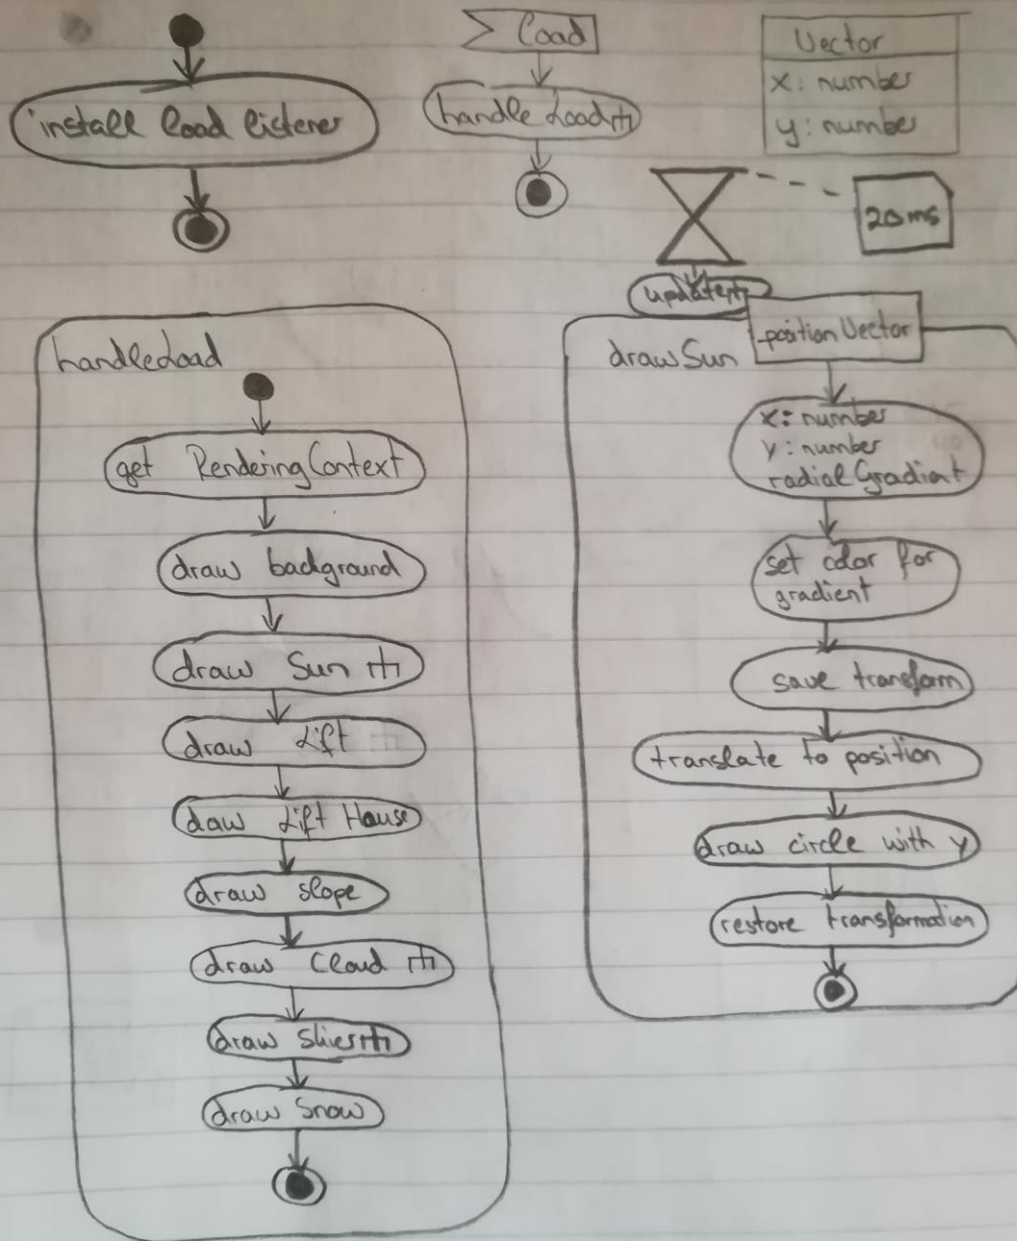 install load listener
load
handleLoad
Vector
x: number
y: number
20ms
update
handleLoad
get RenderingContext
draw background
draw Sun
draw Lift
daw Lift House
draw slope
draw Cloud
draw Skiers
draw Snow
drawSun
positionVector
x: number
y: number
radialGradient
set color for
gradient
save transform
translate to position
draw circle with y
restore transformation